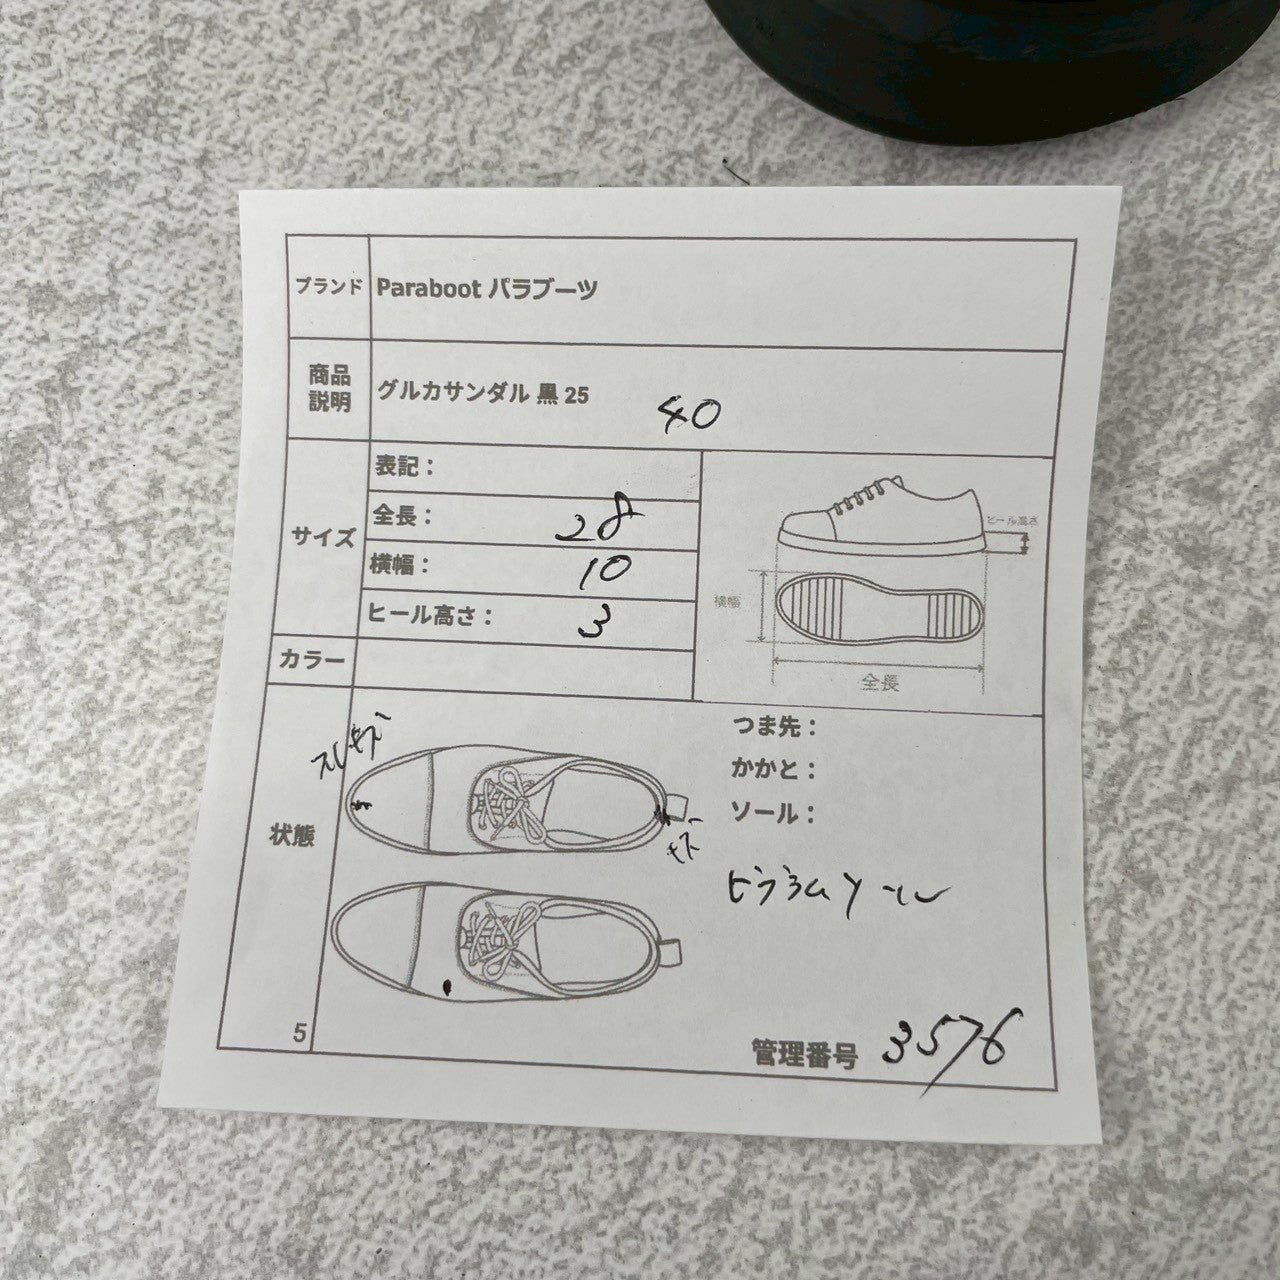 ブランド Paraboot パラブーツ
商品説明 グルカサンダル 黒 25 40
サイズ
表記：
全長： 28
横幅： 10
ヒール高さ： 3
ヒール高さ
横幅
全長
カラー
状態
スレキズ
キズ
つま先：
かかと：
ソール：
ビブラムソール
5
管理番号 3576